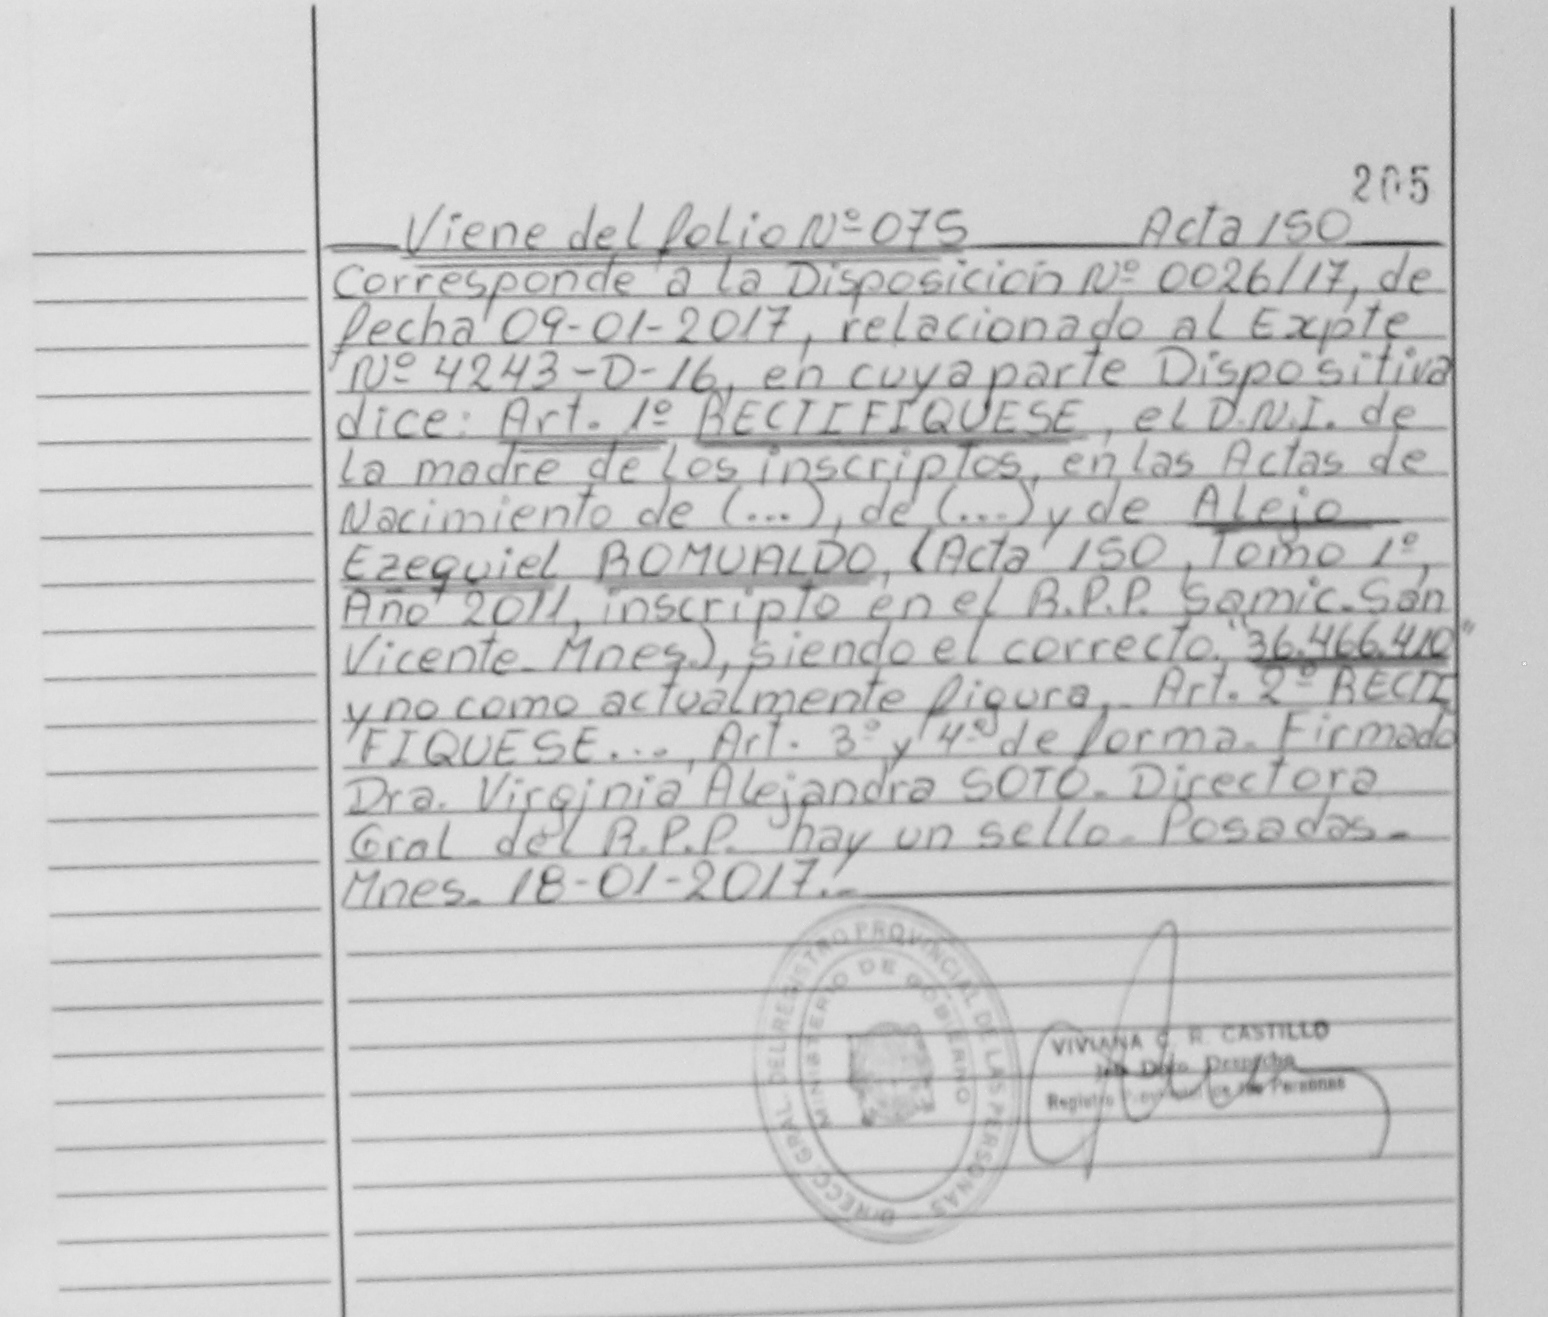 205
Viene del folio Nº 075 Acta 150
Corresponde a la Disposición Nº 0026/17, de
fecha 09-01-2017, relacionado al Expte
Nº 4243-D-16, en cuya parte Dispositiva
dice: Art. 1º RECTIFIQUESE, el D.N.I. de
la madre de los inscriptos, en las Actas de
Nacimiento de (...), de (...) y de Alejo
Ezequiel ROMUALDO, (Acta 150, Tomo 1º,
Año 2011, inscripto en el R.P.P. Samic. San
Vicente Mnes.), siendo el correcto "36.466.410"
y no como actualmente figura, Art. 2º RECTI
FIQUESE..., Art. 3º y 4º de forma. Firmado
Dra. Virginia Alejandra SOTO. Directora
Gral del R.P.P. hay un sello. Posadas.
Mnes. 18-01-2017.-
DIRECC. GRAL. DEL REGISTRO PROVINCIAL DE LAS PERSONAS
MINISTERIO DE GOBIERNO
VIVIANA C. R. CASTILLO
Dpto Despacho
Registro Personas